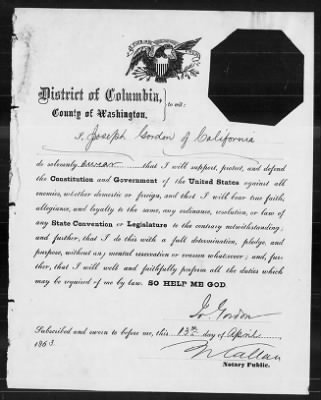 District of Columbia,
County of Washington.
to wit:
I, Joseph Gordon of California
do solemnly swear that I will support, protect, and defend
the Constitution and Government of the United States against all
enemies, whether domestic or foreign, and that I will bear true faith,
allegiance, and loyalty to the same, any ordinance, resolution, or law of
any State Convention or Legislature to the contrary notwithstanding;
and further, that I do this with a full determination, pledge, and
purpose, without any mental reservation or evasion whatsoever; and, fur-
ther, that I will well and faithfully perform all the duties which
may be required of me by law. SO HELP ME GOD.
Jo Gordon
Subscribed and sworn to before me, this 13th day of April
1863.
N Callan
Notary Public.